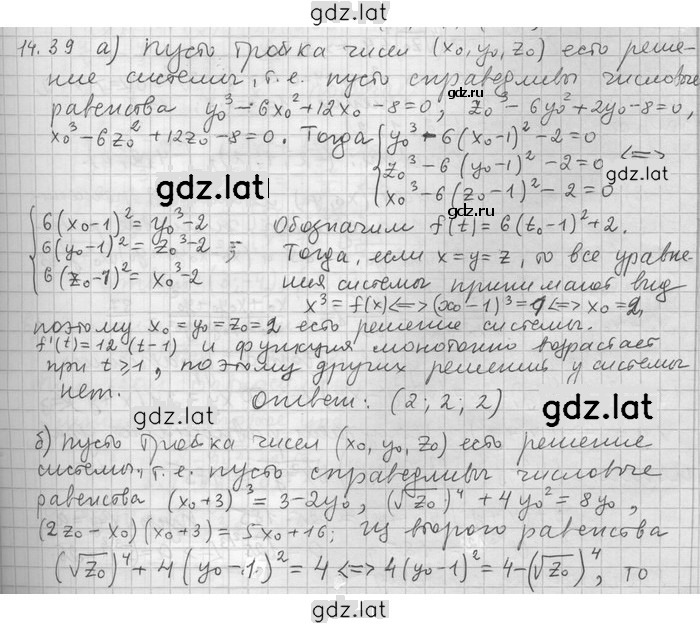 gdz.lat
14.39 а) Пусть тройка чисел (x₀, y₀, z₀) есть реше-
ние системы, т.е. пусть справедливы числовые
равенства y₀³ - 6x₀² + 12x₀ - 8 = 0, z₀³ - 6y₀² + 2y₀ - 8 = 0,
x₀³ - 6z₀² + 12z₀ - 8 = 0. Тогда { y₀³ - 6(x₀-1)² - 2 = 0
z₀³ - 6(y₀-1)² - 2 = 0 <=>
x₀³ - 6(z₀-1)² - 2 = 0
gdz.lat
gdz.lat
gdz.lat
{ 6(x₀-1)² = y₀³-2 Обозначим f(t) = 6(t₀-1)² + 2.
6(y₀-1)² = z₀³-2 ; Тогда, если x = y = z, то все уравне-
6(z₀-1)² = x₀³-2 ния системы принимают вид
x³ = f(x) <=> (x₀-1)³ = 1 <=> x₀ = 2,
поэтому x₀ = y₀ = z₀ = 2 есть решение системы.
f'(t) = 12(t-1) и функция монотонно возрастает
при t ≥ 1, поэтому других решений у системы
нет. Ответ: (2; 2; 2)
gdz.lat
gdz.lat
gdz.lat
б) Пусть тройка чисел (x₀, y₀, z₀) есть решение
системы, т.е. пусть справедливы числовые
равенства (x₀+3)³ = 3-2y₀, (√z₀)⁴ + 4y₀² = 8y₀,
(2z₀-x₀)(x₀+3) = 5x₀+16; из второго равенства
(√z₀)⁴ + 4(y₀-1)² = 4 <=> 4(y₀-1)² = 4-(√z₀)⁴, то
gdz.lat
gdz.lat